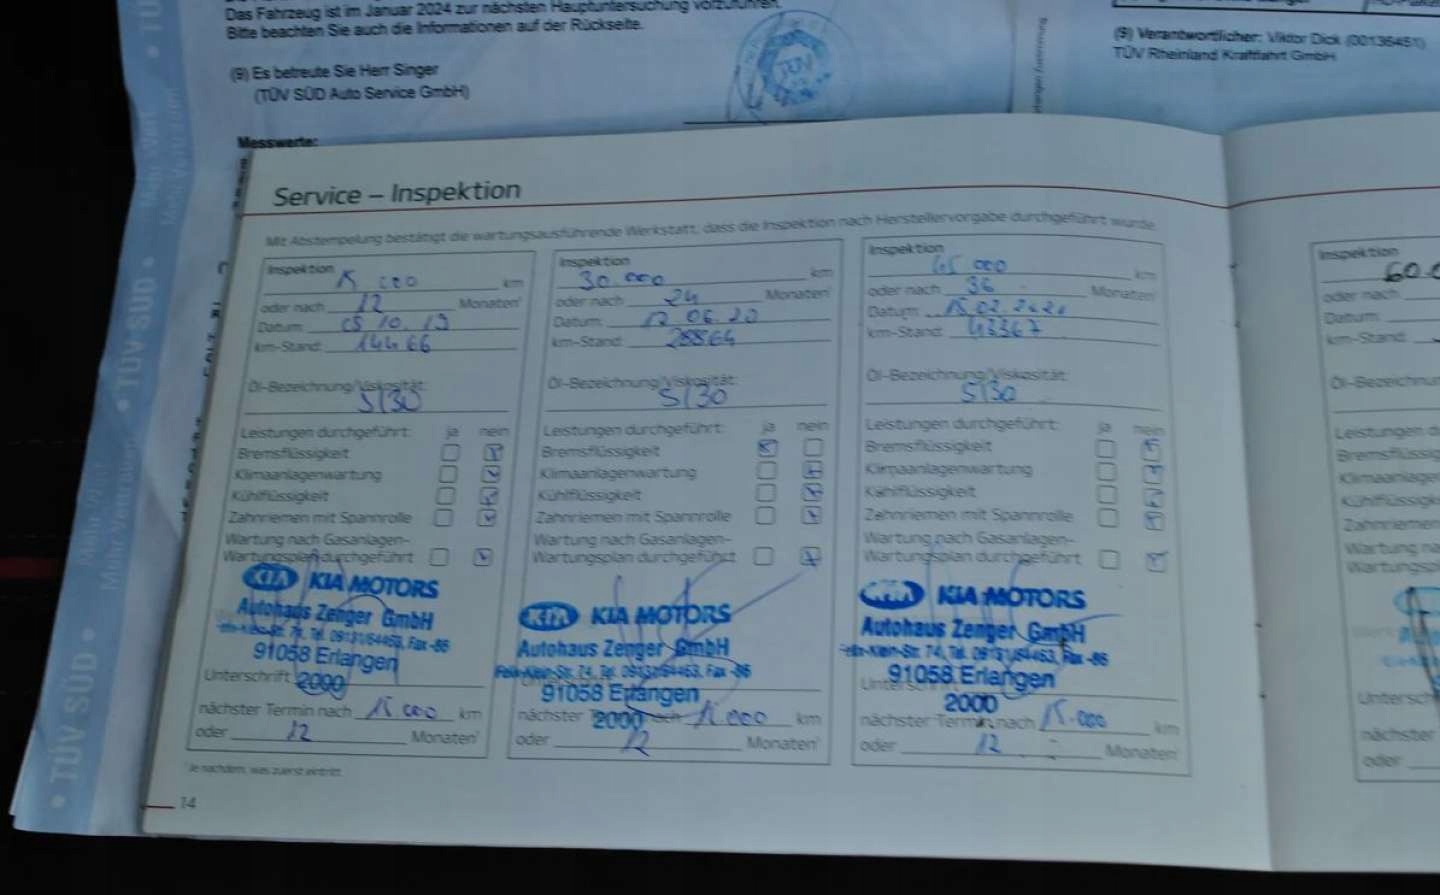 Das Fahrzeug ist im Januar 2024 zur nächsten Hauptuntersuchung vorzuführen.
Bitte beachten Sie auch die Informationen auf der Rückseite.
(9) Es betreute Sie Herr Singer
(TÜV SÜD Auto Service GmbH)
Messwerte:
TÜV
(9) Verantwortlicher: Viktor Dick (00136451)
TÜV Rheinland Kraftfahrt GmbH
• TÜV SÜD •
• TÜV SÜD •
Service – Inspektion
Mit Abstempelung bestätigt die wartungsausführende Werkstatt, dass die Inspektion nach Herstellervorgabe durchgeführt wurde.
Inspektion
15.000 km
oder nach 12 Monaten¹
Datum: 05 10. 19
km-Stand: 14466
Öl-Bezeichnung/Viskosität:
5/30
Leistungen durchgeführt: ja nein
Bremsflüssigkeit
Klimaanlagenwartung
Kühlflüssigkeit
Zahnriemen mit Spannrolle
Wartung nach Gasanlagen-
Wartungsplan durchgeführt
KIA KIA MOTORS
Autohaus Zenger GmbH
Felix-Klein-Str. 74, Tel. 09131/64463, Fax -86
91058 Erlangen
Unterschrift 2000
nächster Termin nach 15.000 km
oder 12 Monaten¹
Inspektion
30.000 km
oder nach 24 Monaten¹
Datum: 12 06.20
km-Stand: 28864
Öl-Bezeichnung/Viskosität:
5/30
Leistungen durchgeführt: ja nein
Bremsflüssigkeit
Klimaanlagenwartung
Kühlflüssigkeit
Zahnriemen mit Spannrolle
Wartung nach Gasanlagen-
Wartungsplan durchgeführt
KIA KIA MOTORS
Autohaus Zenger GmbH
Felix-Klein-Str. 74, Tel. 09131/64463, Fax -86
91058 Erlangen
2000
nächster Termin nach 15.000 km
oder 12 Monaten¹
Inspektion
45.000 km
oder nach 36 Monaten¹
Datum: 15.02.2021
km-Stand: 43367
Öl-Bezeichnung/Viskosität:
5/30
Leistungen durchgeführt: ja nein
Bremsflüssigkeit
Klimaanlagenwartung
Kühlflüssigkeit
Zahnriemen mit Spannrolle
Wartung nach Gasanlagen-
Wartungsplan durchgeführt
KIA KIA MOTORS
Autohaus Zenger GmbH
Felix-Klein-Str. 74, Tel. 09131/64463, Fax -86
91058 Erlangen
2000
nächster Termin nach 15.000 km
oder 12 Monaten¹
¹ Je nachdem, was zuerst eintritt.
14
Inspektion
60.0
oder nach
Datum:
km-Stand:
Öl-Bezeichnun
Leistungen d
Bremsflüssig
Klimaanlagen
Kühlflüssigk
Zahnriemen
Wartung na
Wartungspl
Untersch
nächster
oder